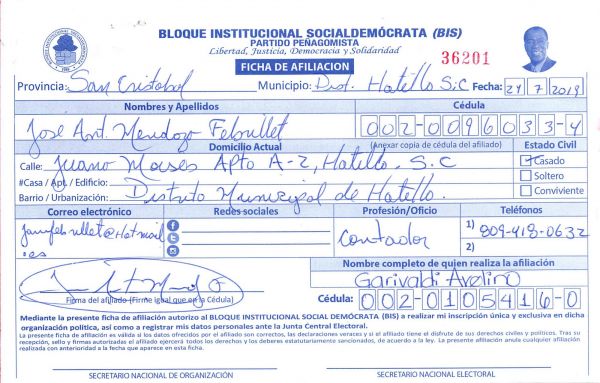 BLOQUE INSTITUCIONAL SOCIALDEMÓCRATA (BIS)
PARTIDO PEÑAGOMISTA
Libertad, Justicia, Democracia y Solidaridad
FICHA DE AFILIACION
36201
Provincia: San Cristobal Municipio: Dist. Hatillo S.C Fecha: 24 7 2019
Nombres y Apellidos Cédula
José Ant. Mendozo Febrillet 002-0096033-4
Domicilio Actual (Anexar copia de cédula del afiliado) Estado Civil
Calle: Juano Moises Apto A-2, Hatillo. S.C Casado
#Casa / Apt. / Edificio: Soltero
Barrio / Urbanización: Distrito Municipal de Hatello. Conviviente
Correo electrónico Redes sociales Profesión/Oficio Teléfonos
jamfebrillet@Hotmail.es Contador 1) 809-418-0632
2)
Nombre completo de quien realiza la afiliación
Garivaldi Avelino
Firma del afiliado (Firme igual que en la Cédula) Cédula: 002-0105416-0
Mediante la presente ficha de afiliación autorizo al BLOQUE INSTITUCIONAL SOCIAL DEMÓCRATA (BIS) a realizar mi inscripción única y exclusiva en dicha
organización política, así como a registrar mis datos personales ante la Junta Central Electoral.
La presente ficha de afiliación es valida si los datos ofrecidos por el afiliado son correctos, las declaraciones veraces y si el afiliado tiene el disfrute de sus derechos civiles y políticos. Tras su
recepción, sello y firmas autorizadas el afiliado ejercerá todos los derechos y los deberes estatutariamente sancionados, de acuerdo a la ley. La presente afiliación anula cualquier afiliación
realizada con anterioridad a la fecha que aparece en esta ficha.
SECRETARIO NACIONAL DE ORGANIZACIÓN SECRETARIO NACIONAL ELECTORAL